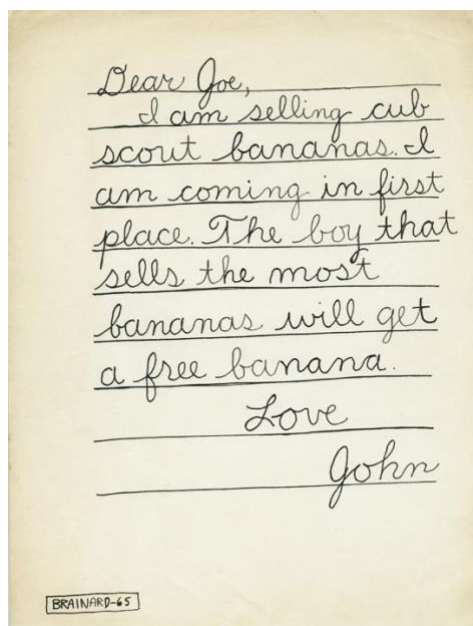 Dear Joe,
I am selling cub
scout bananas. I
am coming in first
place. The boy that
sells the most
bananas will get
a free banana.
Love
John
BRAINARD-65